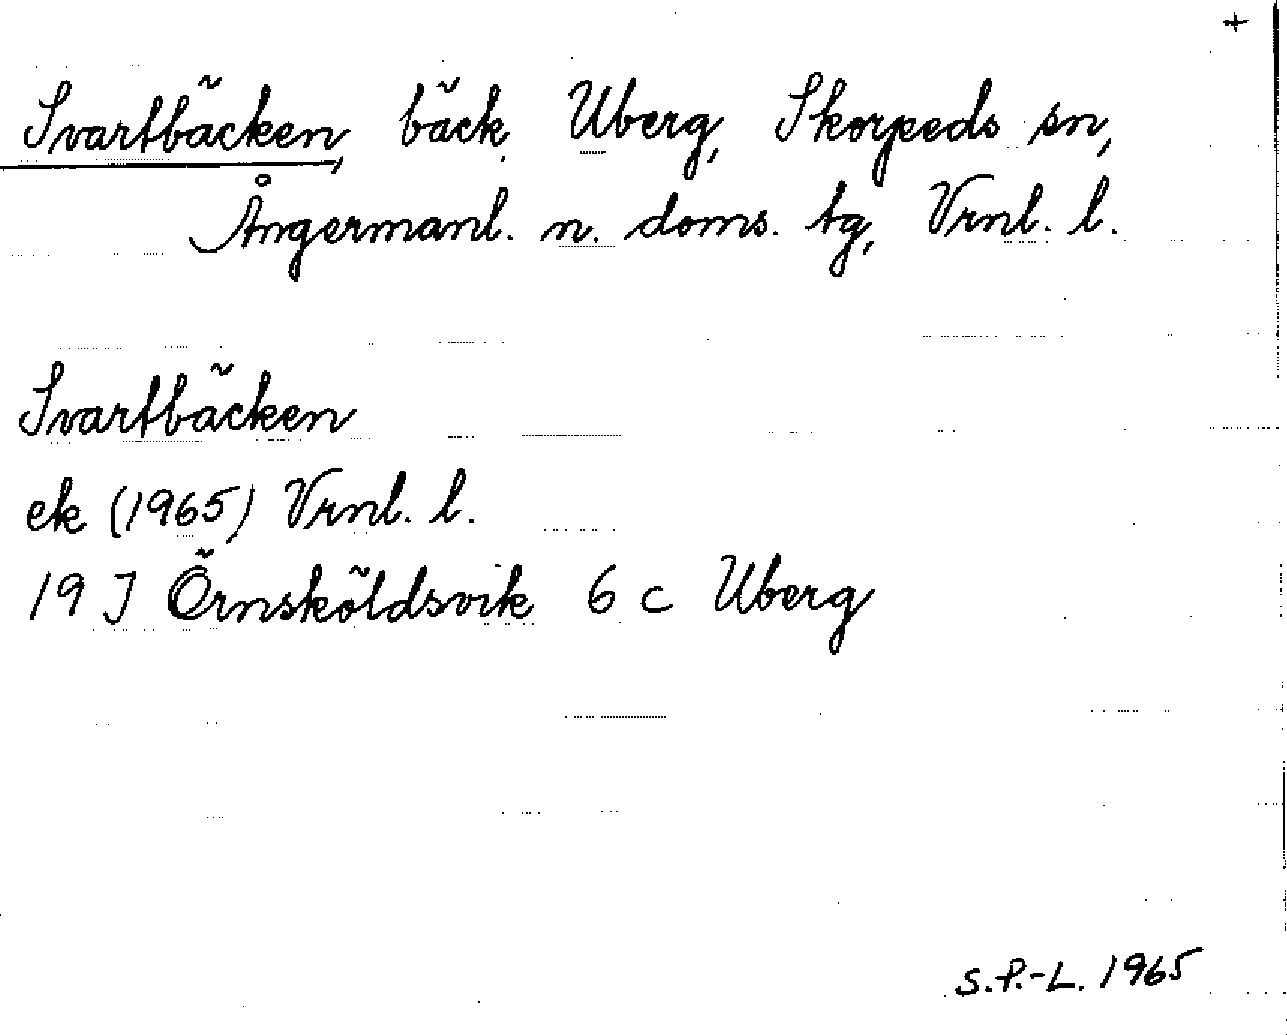 +
Svartbäcken, bäck, Uberg, Skorpeds sn,
Ångermanl. n. doms. tg, Vrnl. l.
Svartbäcken
ek (1965) Vrnl. l.
19 J Örnsköldsvik 6 c Uberg
S.P.-L. 1965